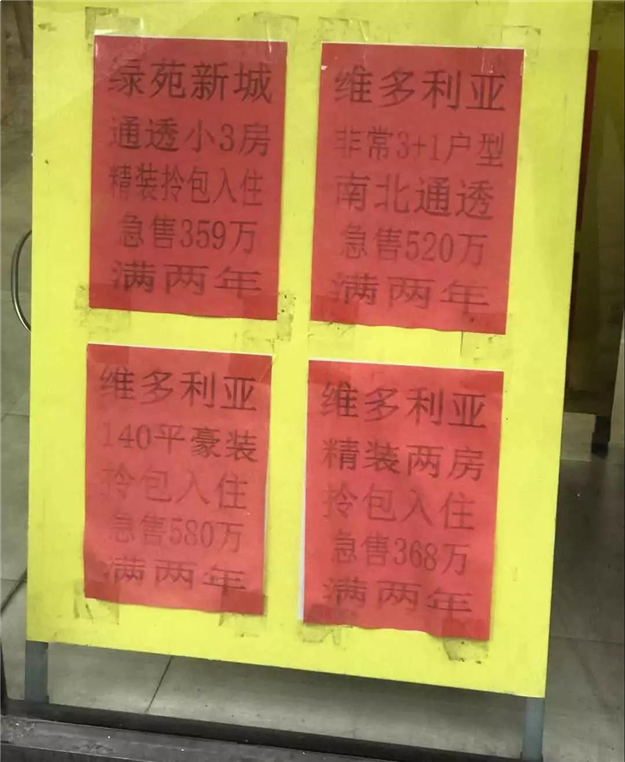 绿苑新城
通透小3房
精装拎包入住
急售359万
满两年
维多利亚
非常3+1户型
南北通透
急售520万
满两年
维多利亚
140平豪装
拎包入住
急售580万
满两年
维多利亚
精装两房
拎包入住
急售368万
满两年